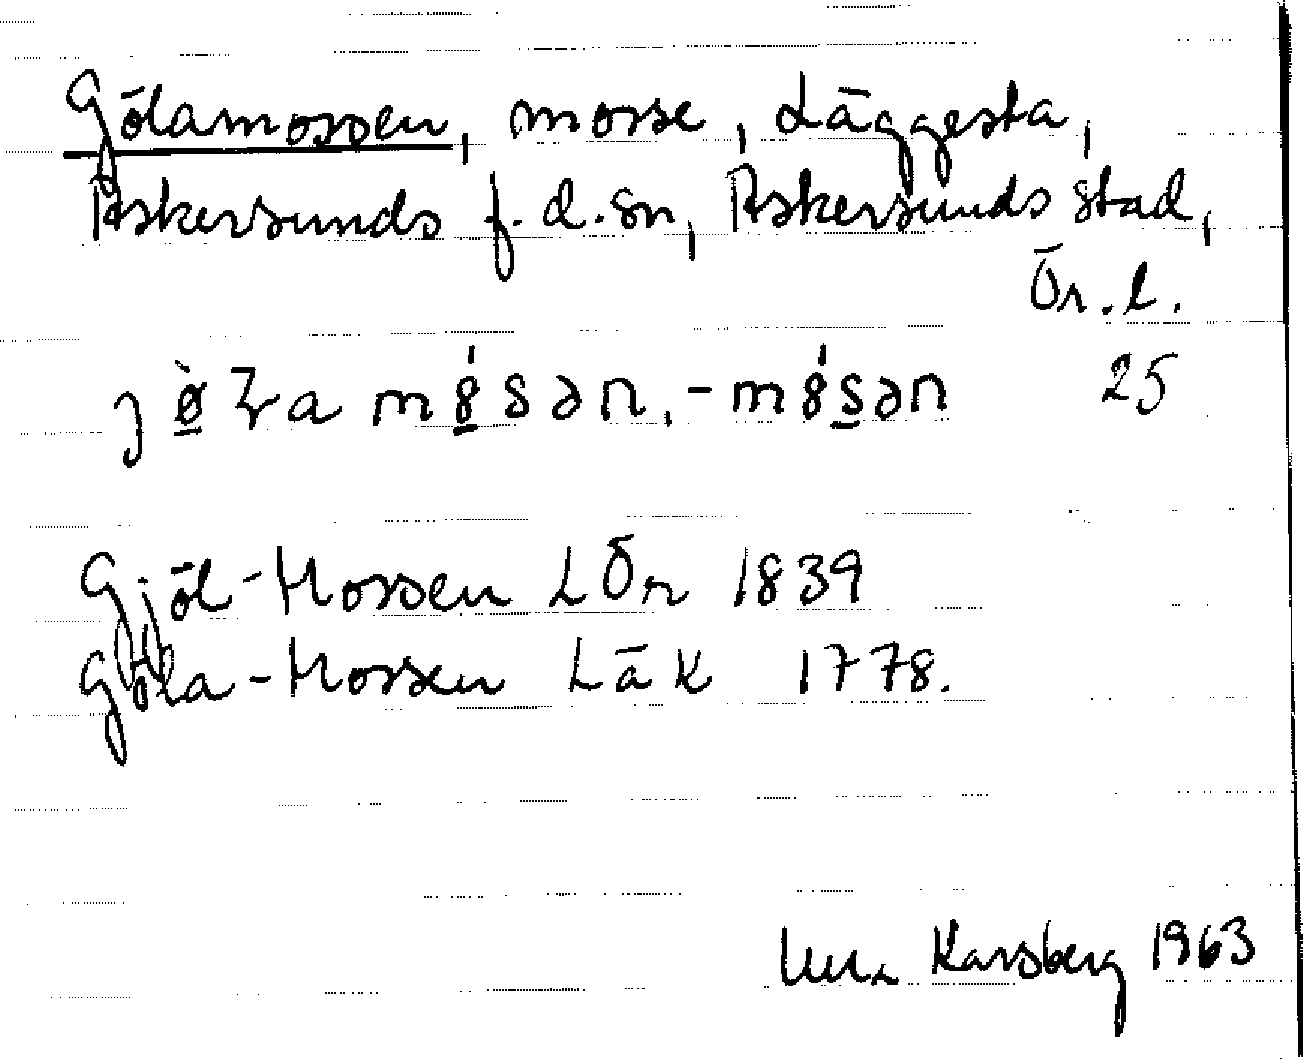 Gölamossen, mosse, Läggesta,
Askersunds f.d.sn, Askersunds stad,
Ör.l.
25
Gjöl-Mossen LÖr 1839
Göla-Mossen LäK 1778.
Karsberg 1963